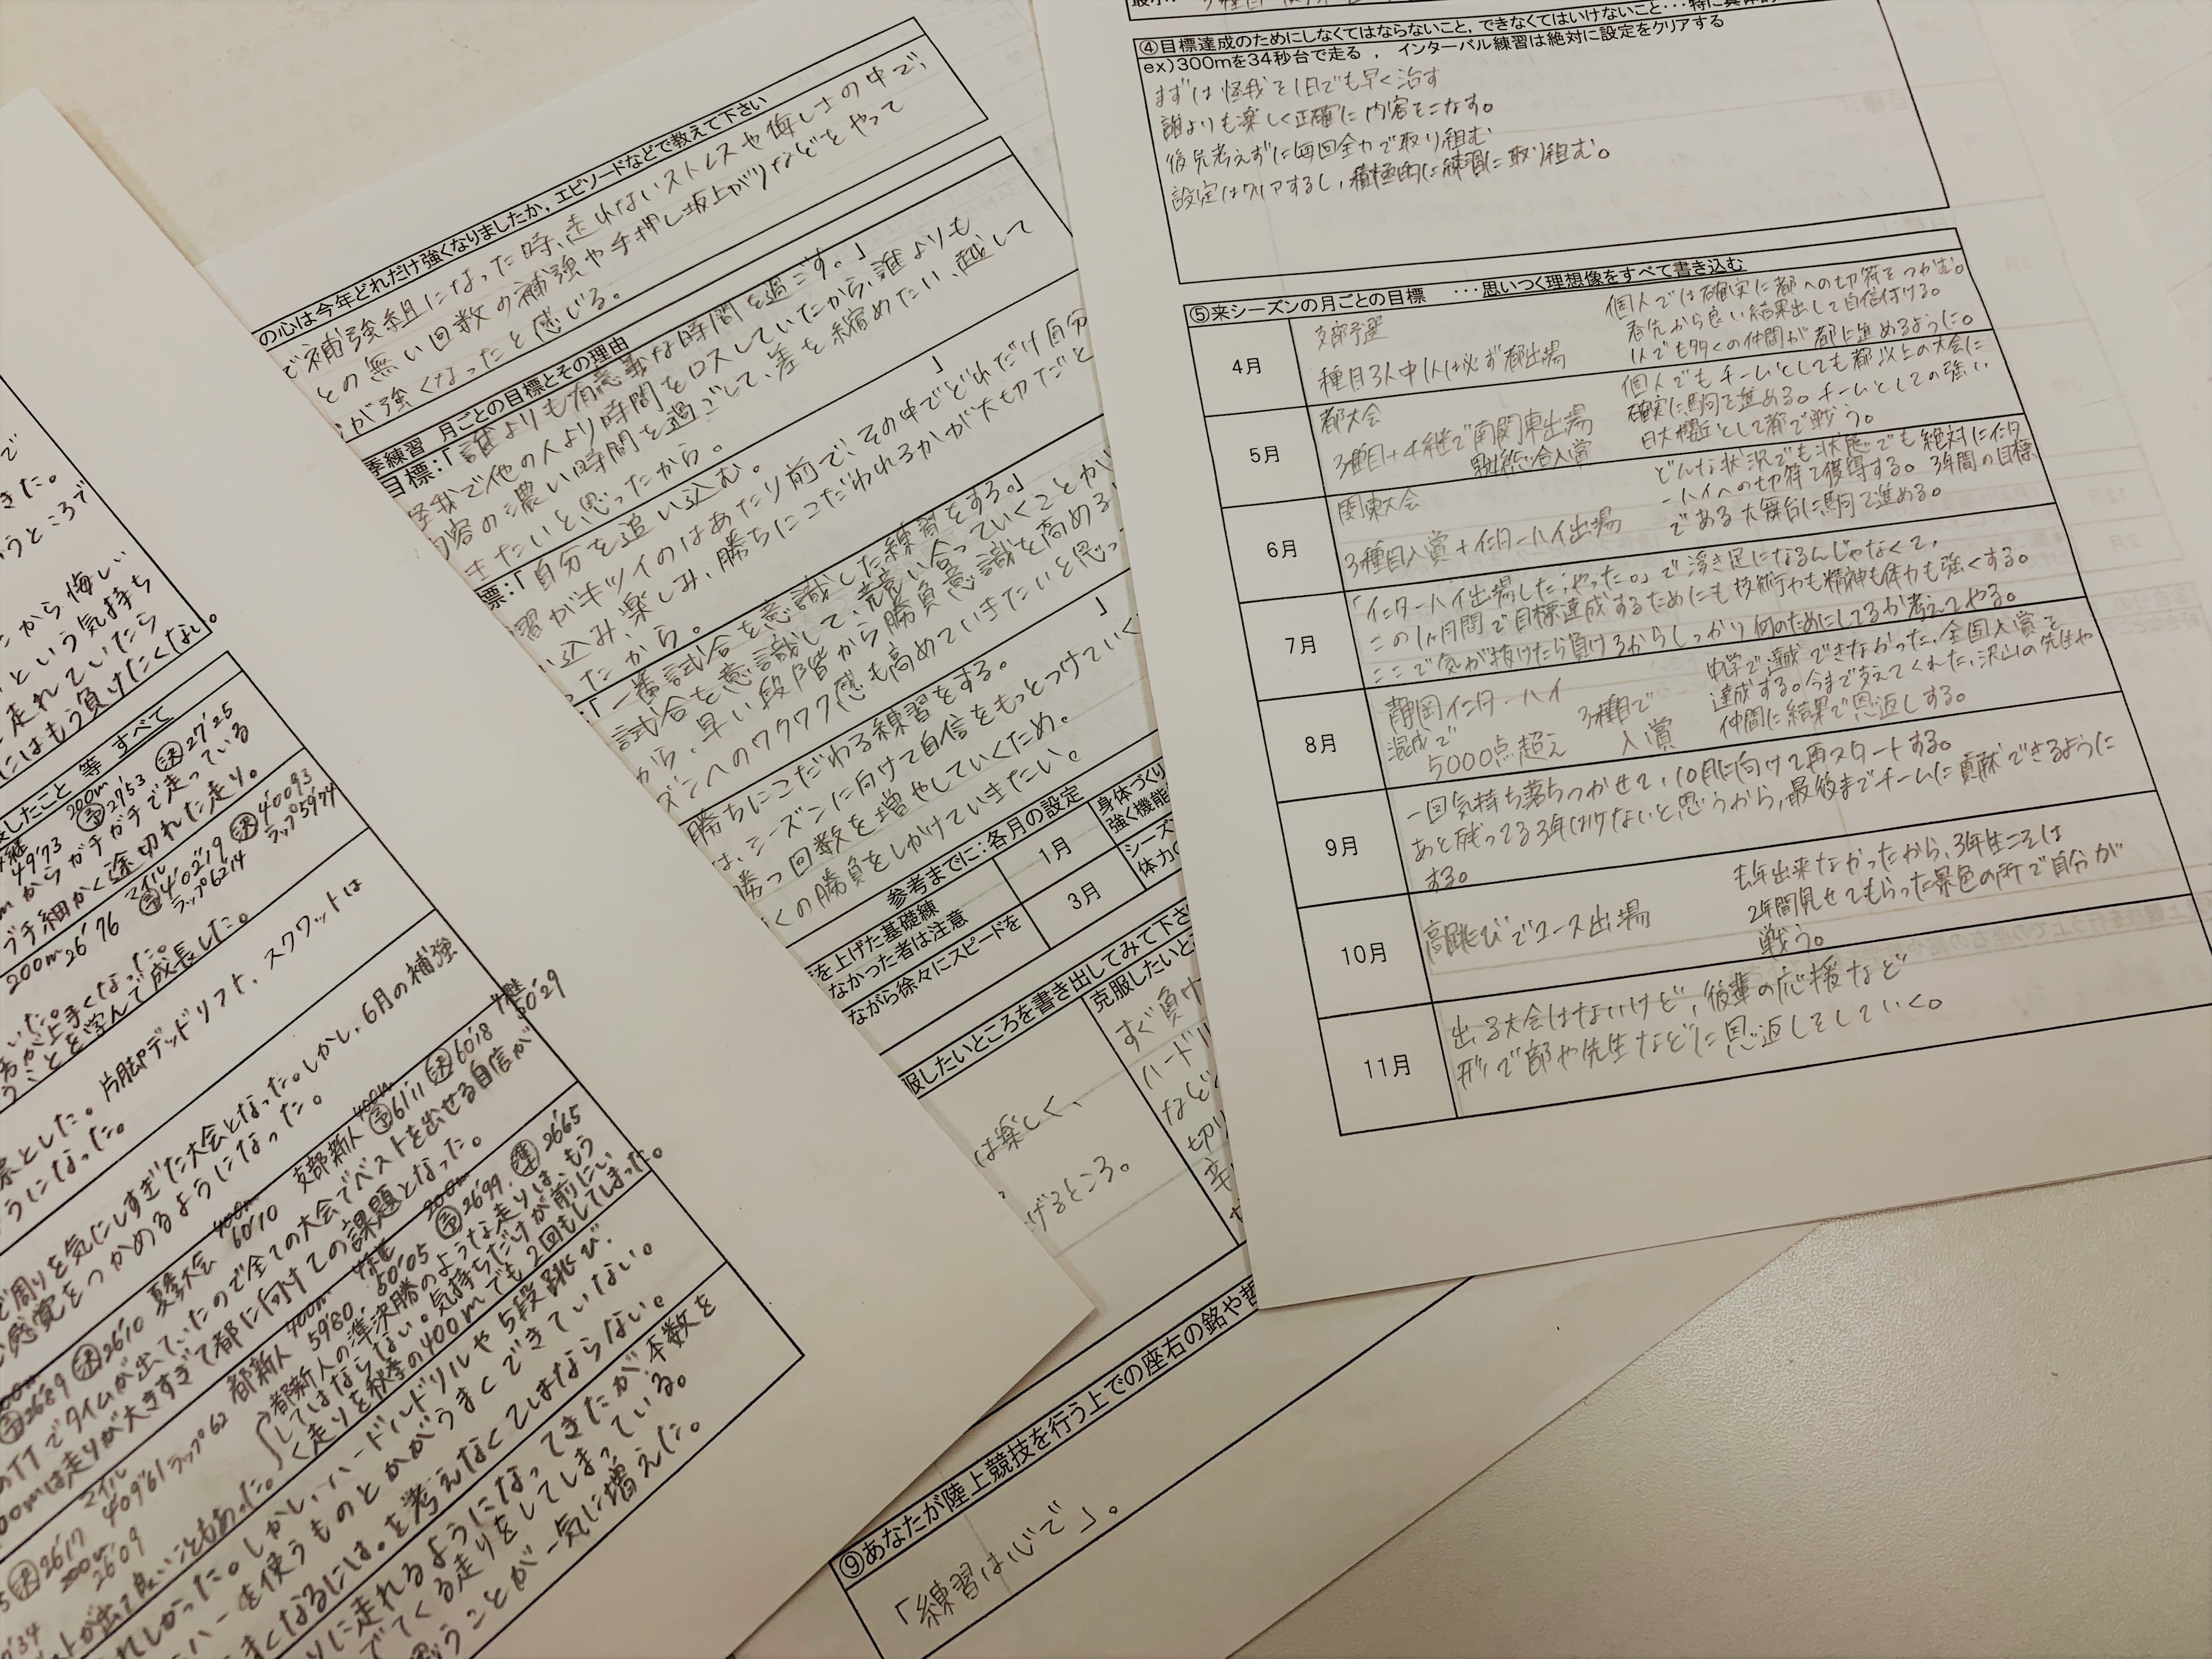 ④目標達成のためにしなくてはならないこと，できなくてはいけないこと・・・特に具体的
ex)300mを34秒台で走る ， インターバル練習は絶対に設定をクリアする
まずは怪我を1日でも早く治す
誰よりも楽しく正確に内容をこなす。
後先考えずに毎回全力で取り組む
設定はクリアするし，積極的に練習に取り組む。
⑤来シーズンの月ごとの目標 ・・・思いつく理想像をすべて書き込む
4月
支部予選
種目3人中1人は必ず都出場
個人では確実に都への切符をつかむ。
春先から良い結果出して自信付ける。
1人でも多くの仲間が都に進めるように。
5月
都大会
3種目+4継で南関東出場
総合入賞
個人でもチームとしても都以上の大会に
確実に駒を進める。チームとしての強い
日大櫻丘として都で戦う。
6月
関東大会
3種目入賞+インターハイ出場
どんな状況でも状態でも絶対にインタ
ーハイへの切符を獲得する。3年間の目標
である大舞台に駒を進める。
7月
「インターハイ出場した，やった。」で浮き足になるんじゃなくて，
この1ヶ月間で目標達成するためにも技術力も精神も体力も強くする。
ここで気が抜けたら負けるからしっかり何のためにしてるか考えてやる。
8月
静岡インターハイ
混成で
5000点超え
3種目で
入賞
中学で達成できなかった，全国入賞を
達成する。今まで支えてくれた，沢山の先生や
仲間に結果で恩返しする。
9月
一回気持ち落ちつかせて，10月に向けて再スタートする。
あと残ってる3年は少ないと思うから，最後までチームに貢献できるように
する。
10月
高跳びでユース出場
去年出来なかったから，3年生こそは
2年間見せてもらった景色の所で自分が
戦う。
11月
出る大会はないけど，後輩の応援など
形で部や先生などに恩返しをしていく。
の心は今年どれだけ強くなりましたか，エピソードなどで教えて下さい
で補強組になった時，走れないストレスや悔しさの中で，
との無い回数の補強や手押し坂上がりなどをやって
が強くなったと感じる。
季練習 月ごとの目標とその理由
目標：「誰よりも有意義な時間を過ごす。」
怪我で他の人より時間をロスしていたから，誰よりも
内容の濃い時間を過ごして，差を縮めたい，越して
きたいと思ったから。
標：「自分を追い込む。 」
習がキツイのはあたり前で，その中でどれだけ自分
い込み，楽しみ，勝ちにこだわれるかが大切だと
ったから。
：「一番試合を意識した練習をする。」
試合を意識して，競い合っていくことが
から，早い段階から勝負意識を高める
ズンへのワクワク感も高めていきたいと思っ
勝ちにこだわる練習をする。 」
は，シーズンに向けて自信をもっとつけていく
勝つ回数を増やしていくため。
くの勝負をしかけていきたい。
参考までに：各月の設定
を上げた基礎練
なかった者は注意
1月
身体づくり
強く機能
ながら徐々にスピードを
3月
シーズ
体力の
服したいところを書き出してみて下さ
克服したいと
は楽しく，
げるところ。
すぐ負け
ハードル
など
切り
⑨あなたが陸上競技を行う上での座右の銘や哲
「練習は心で」。
きた。
うところで
から悔しい
という気持ち
走れていたら
にはもう負けたくない。
したこと 等 すべて
49"73
200m
予27"53 決27"25
mからガチガチで走っている
ブチ細かく途切れた走り。
200m
26"76
マイル
予4'02"19 決4'00"93
ラップ62"14 ラップ59"74
が上手くなった。
うことを学んで成長した。
とした。片脚デッドリフト，スクワットは
うになった。
で周りを気にしすぎた大会となった。しかし，6月の補強
感覚をつかめるようになった。
予26"89 決26"10
夏季大会
400m
60"10
支部新人
400m
予61"11 決60"18
4継
50"29
のTTでタイムが出ていたので全ての大会でベストを出せる自信が
00mは走りが大きすぎて都に向けての課題となった。
マイル
4'09"61 ラップ62
都新人
400m
59"80
4継
50"05
200m
予26"99 準26"65
都新人の準決勝のような走りは，もう
してはならない。気持ちだけが前にい
く走りを秋季の400mでも2回もしてしまった。
決26"17
200m
26"09
ストが出て良いこともあった。
れしかった。しかし，ハードルドリルや5段跳び，
ハーを使うものとかがうまくできていない。
まくなるには。を考えなくてはならない。
りに走れるようになってきたが，本数を
でてくる走りをしてしまっている。
思うことが一気に増えた。